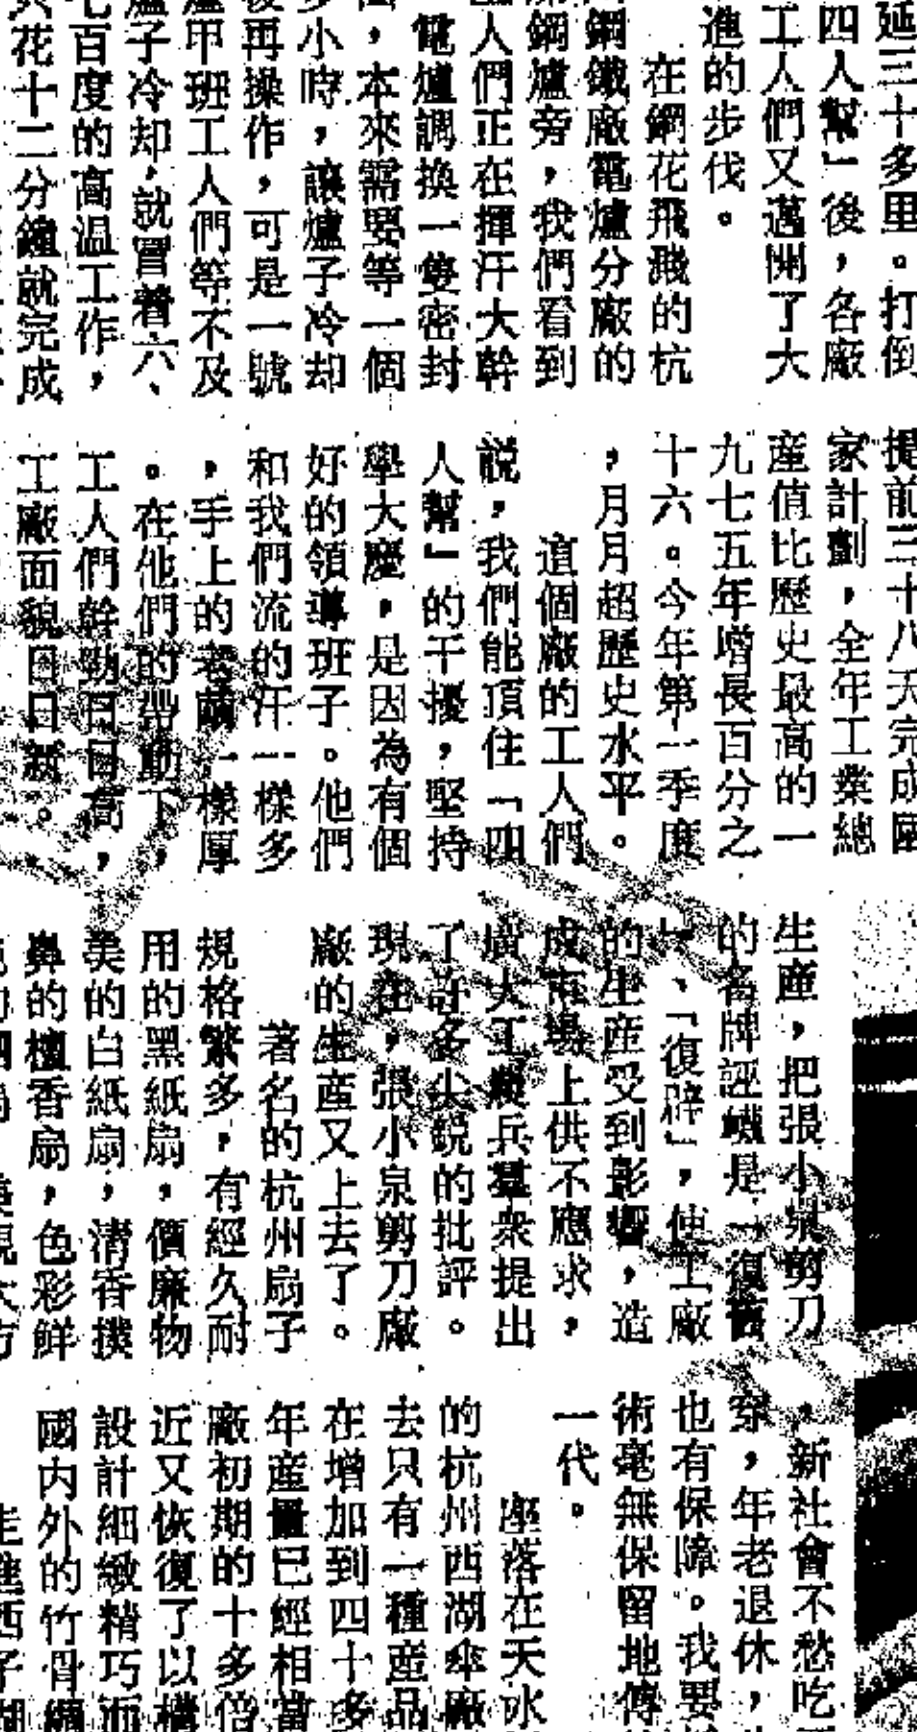 延三十多里。打倒
四人幫」後，各廠
工人們又邁開了大
進的步伐。
在鋼花飛濺的杭
鋼鐵廠電爐分廠的
鋼爐旁，我們看到
人們正在揮汗大幹
電爐調換一隻密封
，本來需要等一個
小時，讓爐子冷却
再操作，可是一號
甲班工人們等不及
爐子冷却，就冒着六、
七百度的高温工作，
花十二分鐘就完成
提前三十八天完成國
家計劃，全年工業總
産值比歷史最高的一
九七五年增長百分之
十六。今年第一季度
，月月超歷史水平。
這個廠的工人們
説，我們能頂住「四
人幫」的干擾，堅持
學大慶，是因為有個
好的領導班子。他們
和我們流的汗一樣多
，手上的老繭一樣厚
。在他們的帶動下，
工人們幹勁日日高，
工廠面貌日日新。
生産，把張小泉剪刀
的名牌誣衊是「復舊
」、「復辟」，使工廠
的生産受到影響，造
成市場上供不應求，
廣大工農兵羣衆提出
了許多尖鋭的批評。
現在，張小泉剪刀廠
廠的生産又上去了。
著名的杭州扇子
規格繁多，有經久耐
用的黑紙扇，價廉物
美的白紙扇，清香撲
鼻的檀香扇，色彩鮮
新社會不愁吃
穿，年老退休，
也有保障。我要
術毫無保留地傳
一代。
座落在天水
的杭州西湖傘廠
去只有一種産品
在增加到四十多
年産量已經相當
廠初期的十多倍
近又恢復了以
設計細緻精巧而
國内外的竹骨綢
走進西子湖